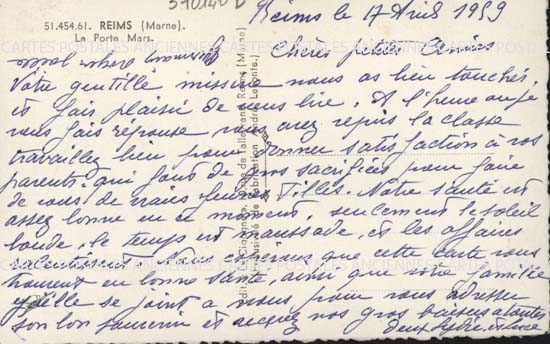 310140 D
51.454.61. REIMS (Marne).
La Porte Mars.
Reims le 17 Avril 1959
Chères petites Amies
Votre gentille missive nous as bien touchés,
et fais plaisir de vous lire. A l'heure ou je
vous fais réponse vous avez repris la classe
travaillez bien pour donner satisfaction à vos
parents qui font de gros sacrifices pour faire
de vous de vraies jeunes Filles. Notre santé est
assez bonne en ce moment, seulement le soleil
boude, le temps est maussade, et les affaires
nous espérons que cette carte vous
trouvent en bonne santé, ainsi que votre famille
se joint a nous pour vous adresser
son bon souvenir et recevez nos gros baisers
CARTES POSTALES ANCIENNES